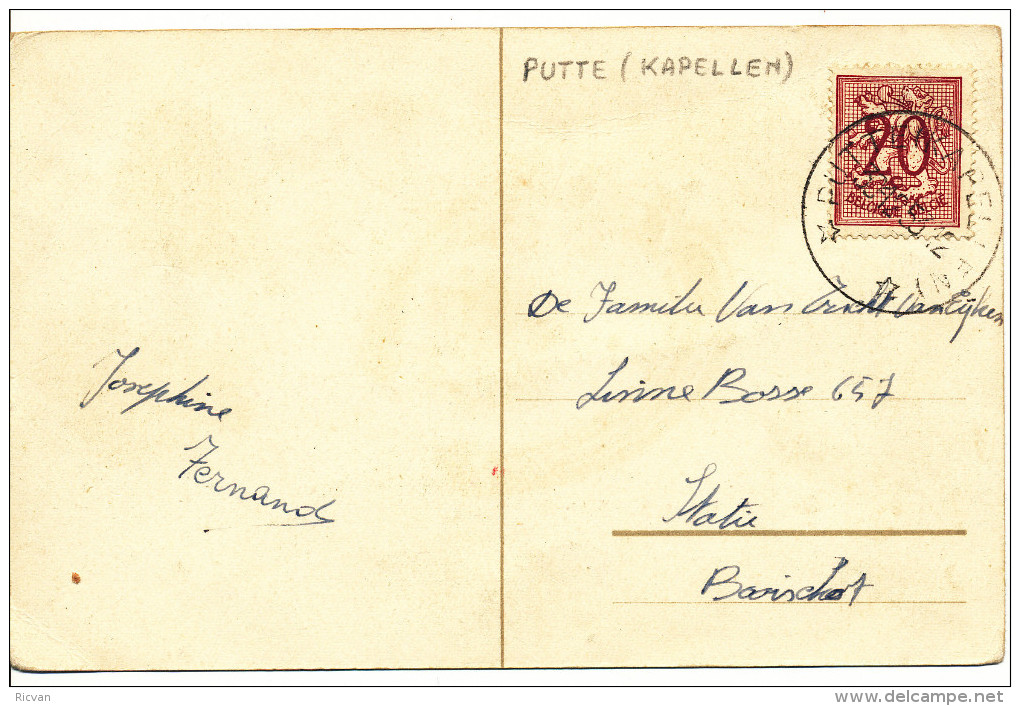 PUTTE (KAPELLEN)
20
c
BELGIQUE BELGIË
PUTTE (KAPELLEN)
De Familie Van Van Eyken
Linne Bosse 657
Statie
Booischot
Josephine
Fernand
Ricvan
www.delcampe.net